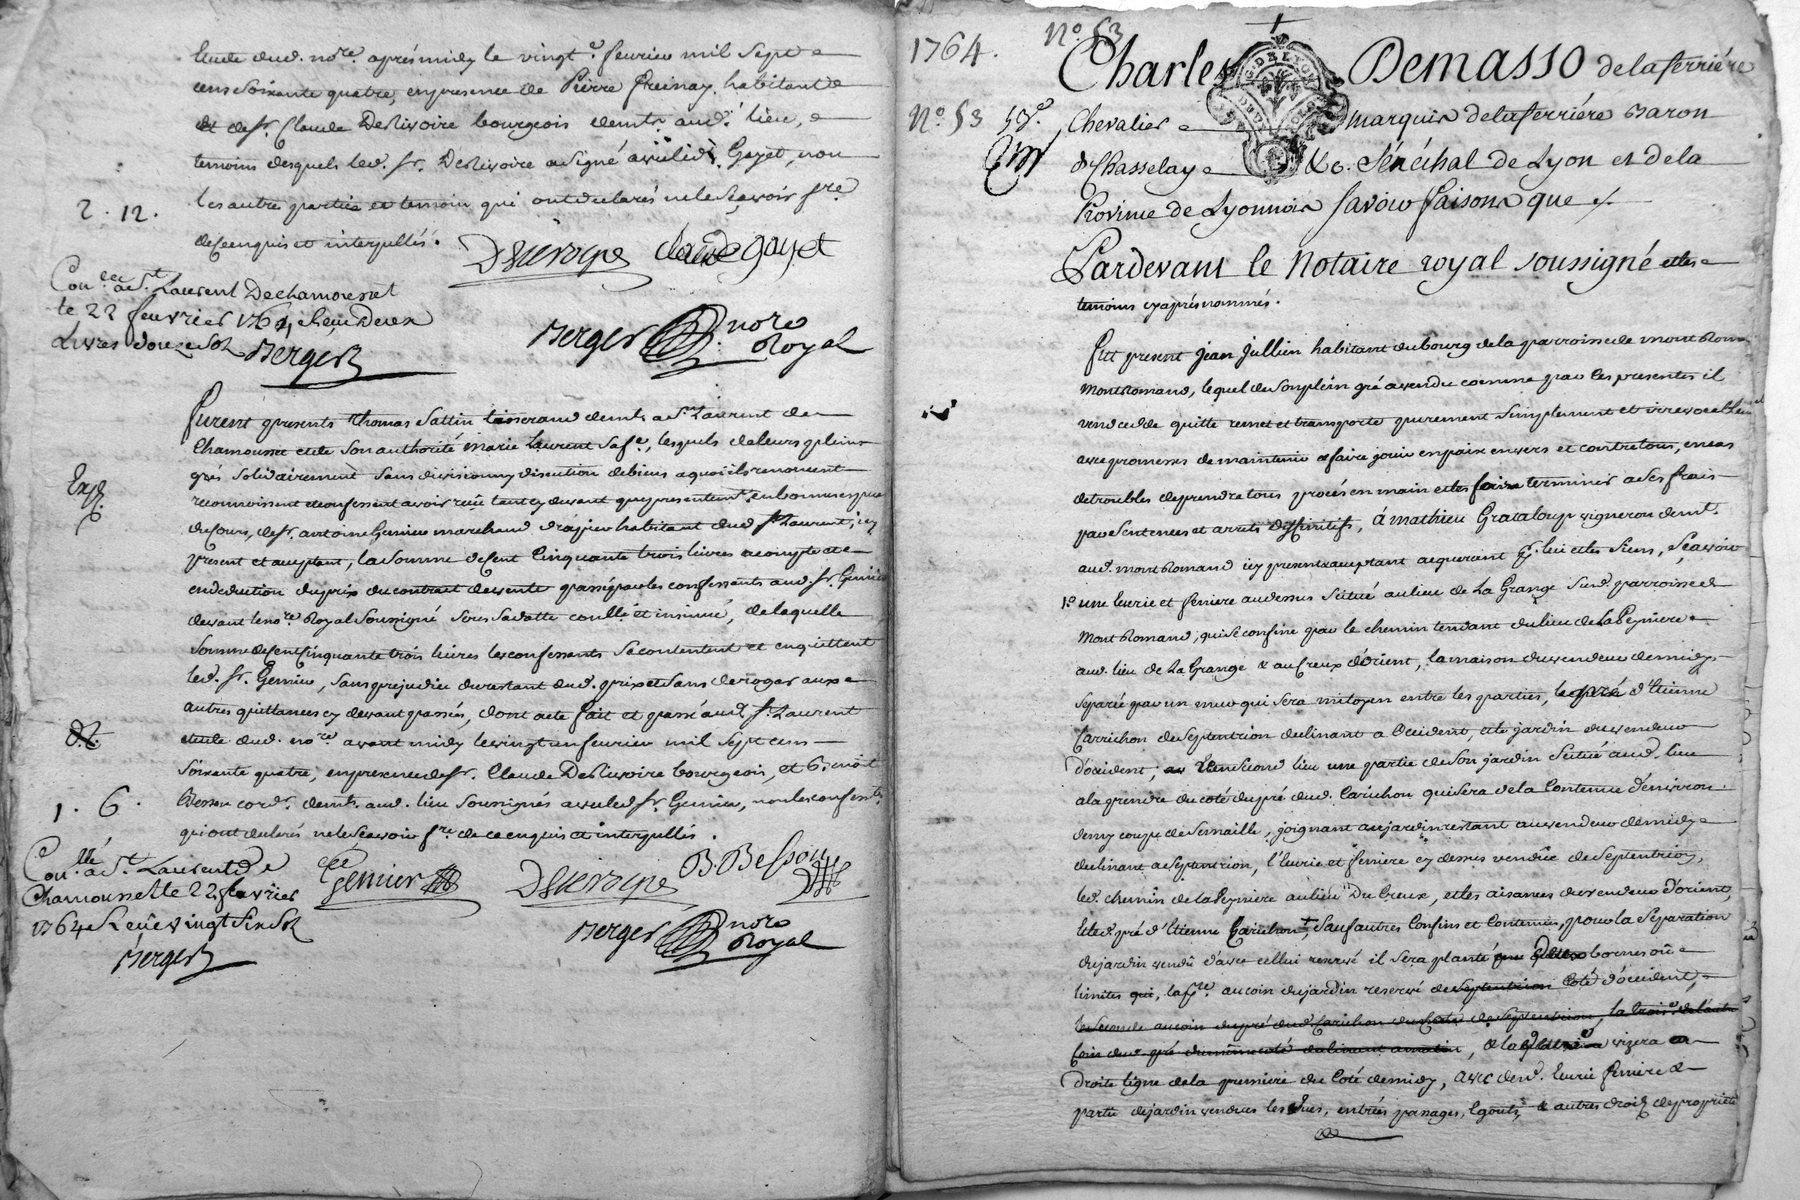 Etude dud. no.re apres midy le vingt.e fevrier mil sept
cens soixante quatre, en presence de Pierre freinay habitant
et de sr. Claude DeRivoire bourgeois demt. aud. lieu,
temoins desquels led. sr. DeRivoire a signé avec led. Gayet, non
les autre partie et temoin qui ont declarés ne le sçavoir f.re
de ce enquis et interpellés.
2. 12.
DeRivoire claude gayet
Con.llé a St. Laurent De chamousset
le 22 fevrier 1764, Reçu Deux
Livres douze sols
Berger
Berger no.re Royal
Furent presents Thomas Sattin tisserand demt. a St. Laurent de
Chamousset et de son authorité Marie Laurent sa fe., lesquels de leurs pleins
grés solidairement sans division ny discution de biens a quoi ils renoncent
reconnoissent et confessent avoir reçu tant cy devant que presentement en bonnes especes
Exp.
du cours, de sr. antoine Gemier marchand drapier habitant dud. St. Laurent, icy
present et acceptant, la somme de cent cinquante trois livres acompte et
en deduction du prix du contrat de vente passé par les confessants aud. sr. Gemier
devant le no.re Royal soussigné sous sa datte con.llé et insinué, de laquelle
somme de cent cinquante trois livres les confessants se contentent et en quittent
led. sr. Gemier, sans prejudice du restant dud. prix et sans deroger aux
autres quittances cy devant passés, dont acte fait et passé aud. St. Laurent
etude dud. no.re avant midy le vingt un fevrier mil sept cens
soixante quatre, en presence de sr. Claude DeRivoire bourgeois, et Benoit
Besson cord.r demt. aud. lieu soussignés avec led. sr. Gemier, non les confess.ts
qui ont declarés ne le sçavoir f.re de ce enquis et interpellés.
1. 6.
Con.llé a St. Laurent de
Chamousset le 22 fevrier
1764 Reçu vingt six Sols
Berger
Gemier DeRivoire B. Besson
Berger no.re Royal
1764. No. 53
No. 53
Charles Demasso de la ferriére
Chevalier marquis de la ferriére Baron
d Chasselay &c. Sénéchal de Lyon et de la
Province de Lyonnois savoir faisons que
Pardevant le Notaire royal soussigné et les
temoins cy après nommés.
Fut present Jean Jullien habitant du bourg de la parroisse de mont Romand
Mont Romand, lequel de son plein gré a vendu comme par les presentes il
vend cedde quitte remet et transporte purement simplement et irrevocablement
avec promesses de maintenir et faire jouir en paix envers et contre tous, en cas
de troubles de prendre tous procés en main et les faire terminer a ses frais
par sentences et arrets deffinitifs, à mathieu Grataloup vigneron demt.
aud. mont Romand icy present acceptant acquerant pr. lui et les siens, sçavoir
1.o une ecurie et feniere au dessus scitué au lieu de La Grange sud. parroisse de
Mont Romand, qui se confine par le chemin tendant du lieu de La Peyniere
aud. lieu de La Grange & au Creux d'orient, la maison du vendeur de midy
separée par un mur qui sera mitoyen entre les parties, le pré d'Etienne
Carrichon de septentrion declinant a Occident, et le jardin du vendeur
d'occident; en second lieu une partie de son jardin scitué aud. lieu
a la prendre du coté du pré dud. Carichon qui sera de la Contenue d'environ
demy coupe de semaille, joignant au jardin restant au vendeur de midy
declinant a septentrion, l'ecurie et feniere cy dessus vendüe de septentrion,
led. chemin de la Peyniere au lieu Du Creux, et les aisances du vendeur d'orient,
et led. pré d'Etienne Carichon +, sauf autres Confins et Contenües, pour la separation
du jardin vendü d'avec cellui reservé il sera planté que deux bornes ou
limites qui, la p.re au coin du jardin reservé de septentrion coté d'occident,
la seconde au coin du pré dud. Carichon du coté de septentrion, la trois.e de l'autre
coin dud. pré du même coté declinant a matin, & la vizera en
droite ligne de la premiere du coté de midy, avec lesd. ecurie feniere &
partie de jardin vendues les vues, entrées passages, egouts & autres droits de proprieté